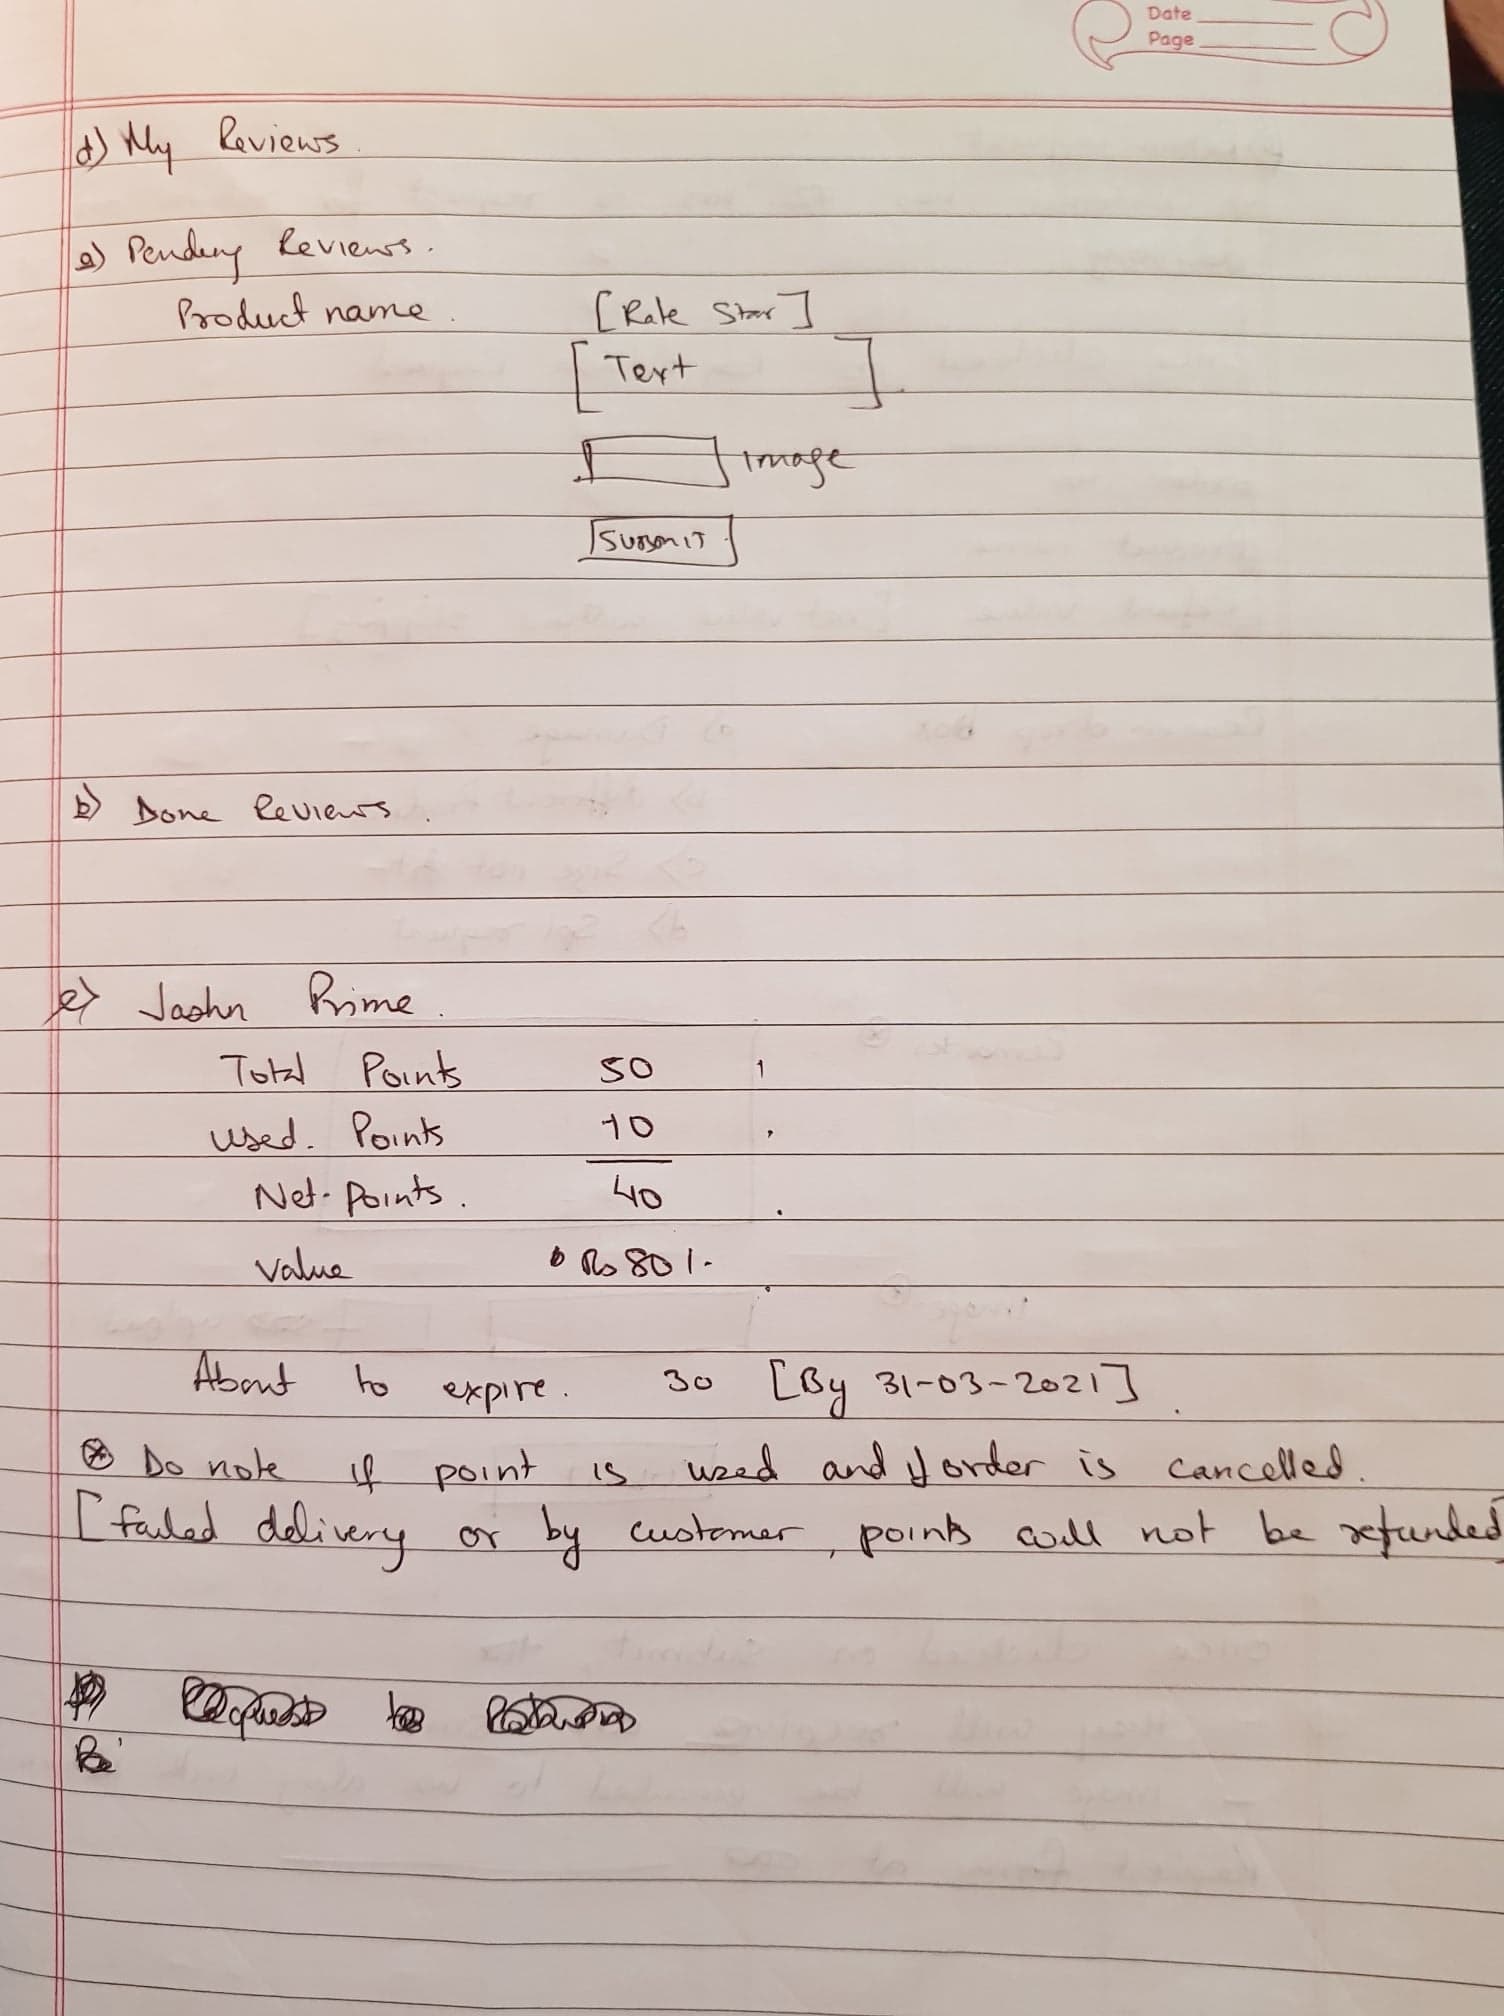 Date
Page
d) My Reviews.
a) Pending Reviews.
Product name. [Rate Star]
[Text ]
Image
SUBMIT
b) Done Reviews.
e) Jashn Prime.
Total Points 50
Used. Points 10
Net. Points. 40
Value Rs 80/-
About to expire. 30 [By 31-03-2021].
Do note if point is used and if order is cancelled.
[failed delivery or by customer, points will not be refunded]